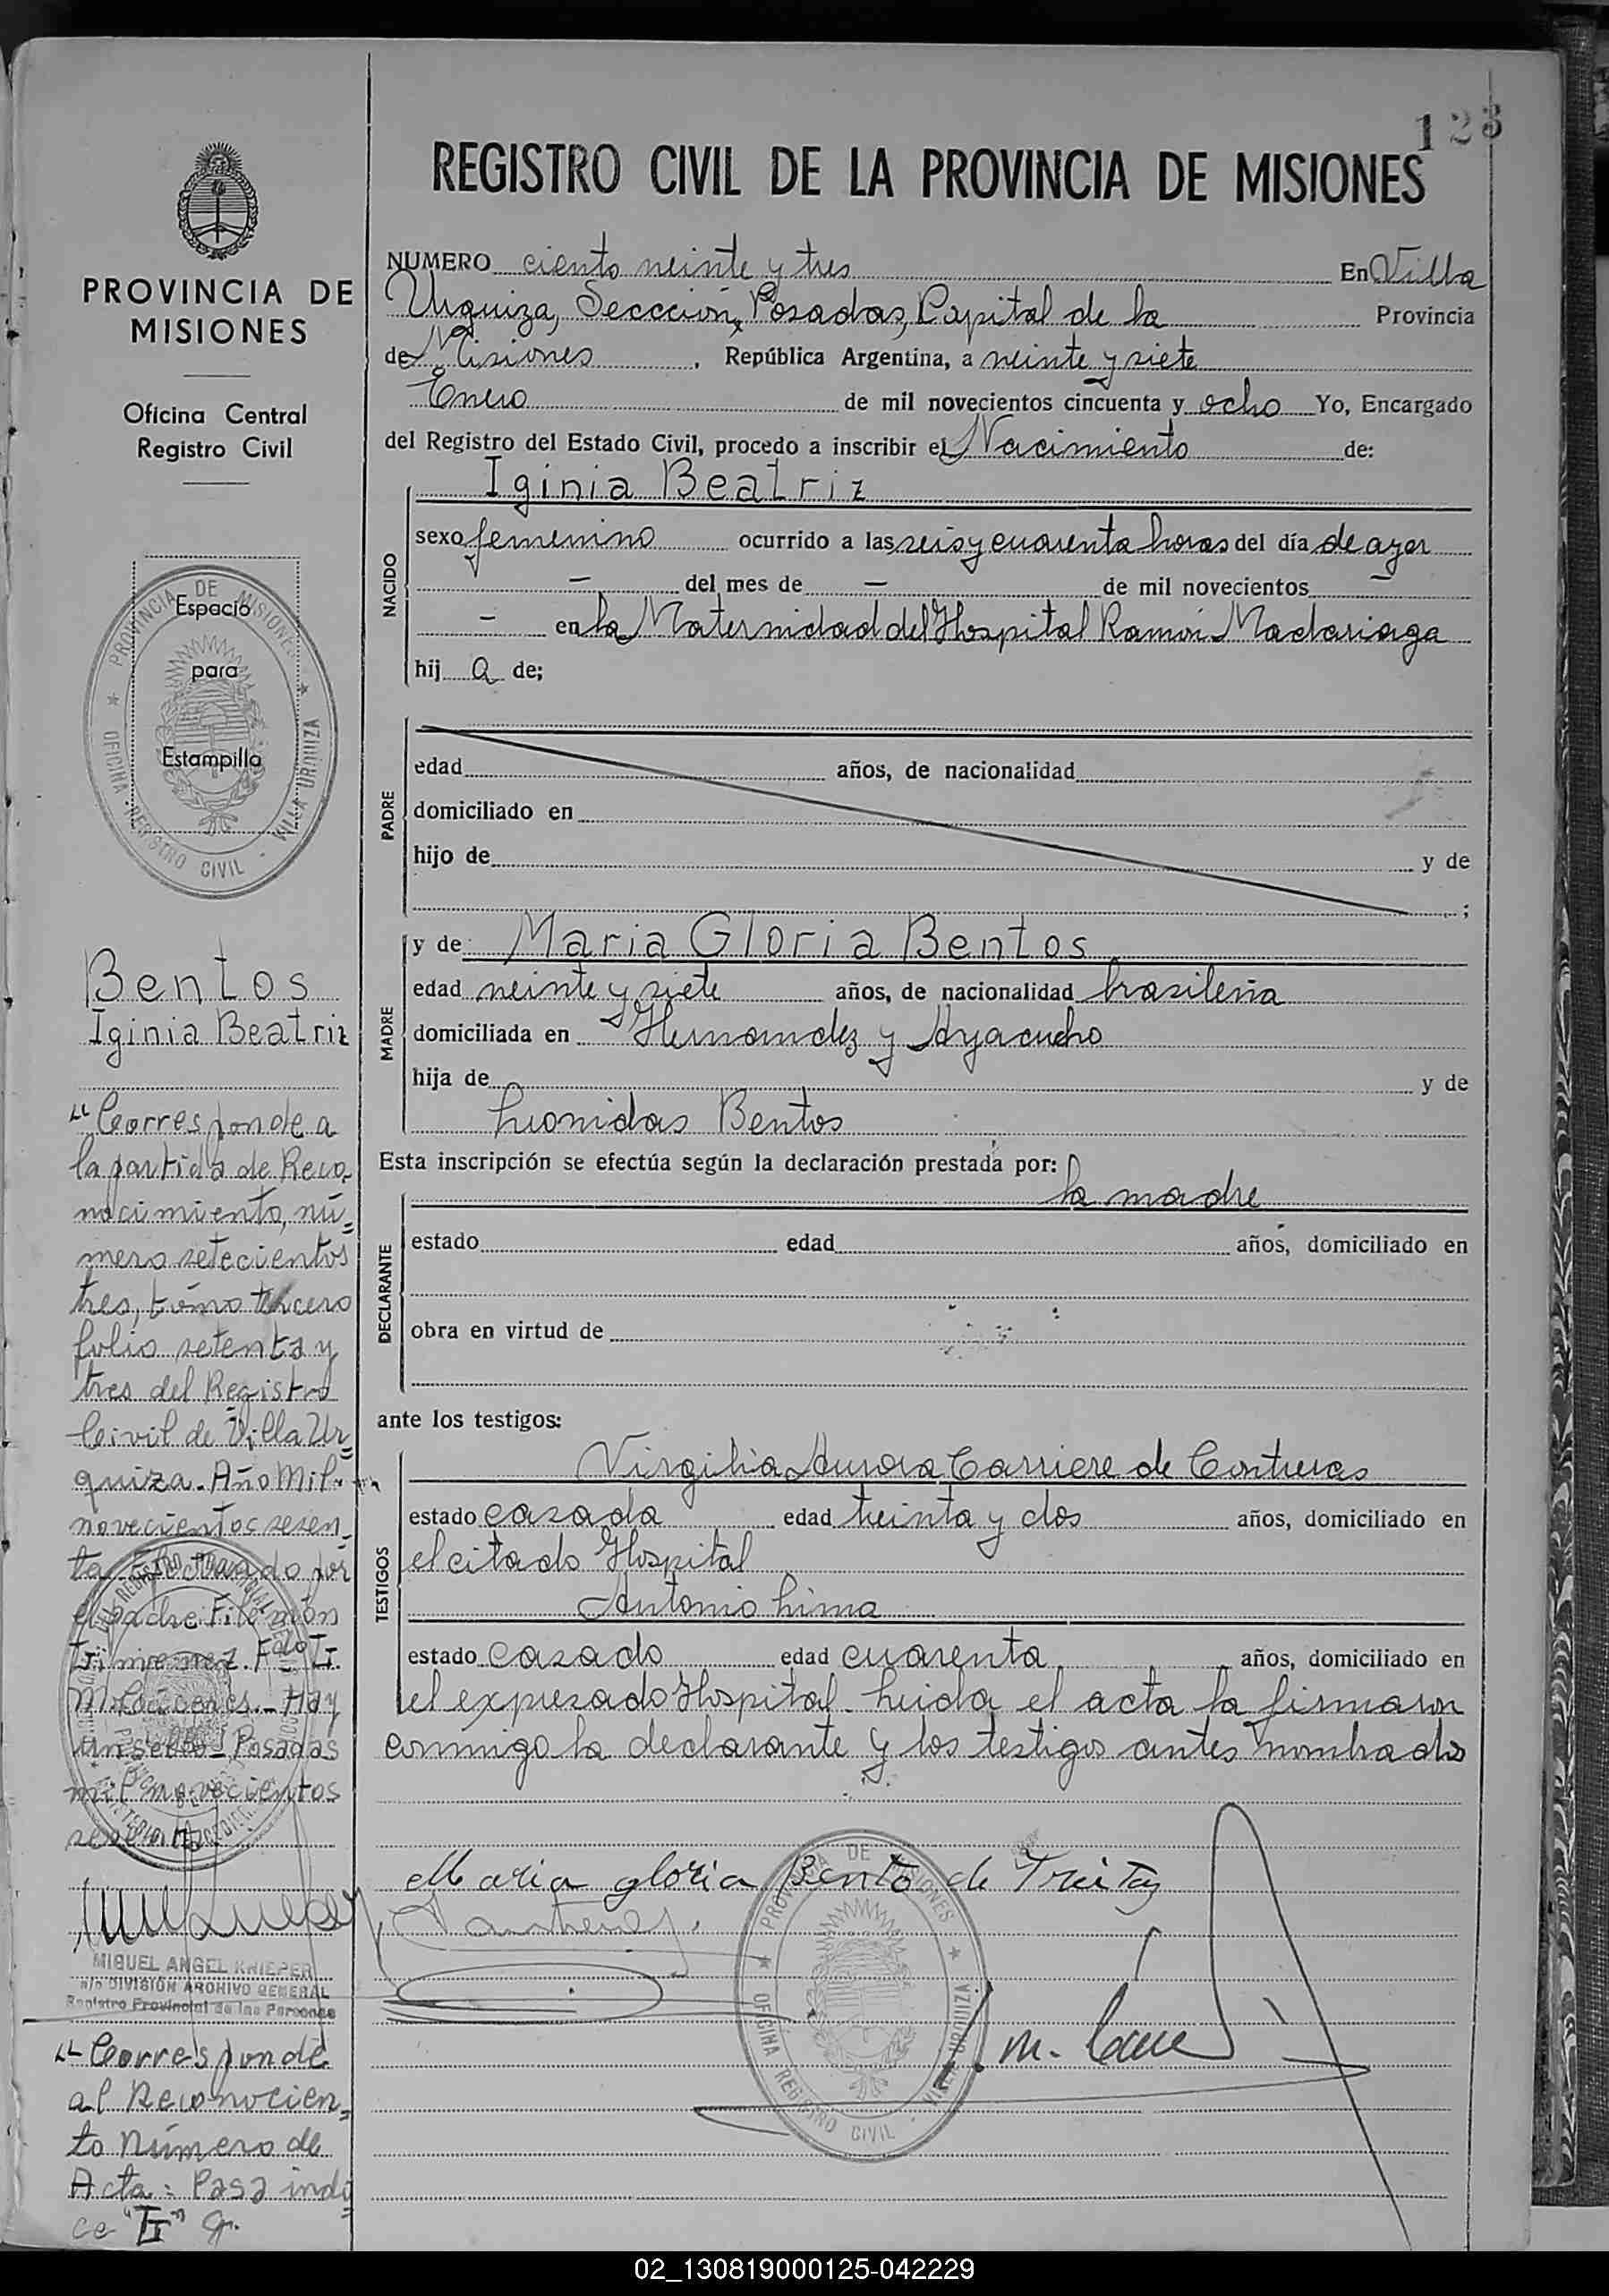 123
REGISTRO CIVIL DE LA PROVINCIA DE MISIONES
PROVINCIA DE
MISIONES
Oficina Central
Registro Civil
Espacio
para
Estampilla
PROVINCIA DE MISIONES
OFICINA REGISTRO CIVIL - VILLA URQUIZA
Bentos
Iginia Beatriz
"Corresponde a
la partida de Reco-
nocimiento, nú=
mero setecientos
tres, tomo tercero
folio setenta y
tres del Registro
Civil de Villa Ur=
quiza. Año Mil
novecientos sesen-
ta. Efectuado por
el padre
Hay
un sello - Posadas
mil novecientos
MIGUEL ANGEL KNIEPER
DIVISIÓN ARCHIVO GENERAL
Registro Provincial de las Personas
"Corresponde
al Reconocien=
to Número de
Acta: Pasa indi
ce
NUMERO ciento veinte y tres En Villa
Urquiza, Seccción, Posadas, Capital de la Provincia
de Misiones, República Argentina, a veinte y siete
Enero de mil novecientos cincuenta y ocho Yo, Encargado
del Registro del Estado Civil, procedo a inscribir el Nacimiento de:
NACIDO
Iginia Beatriz
sexo femenino ocurrido a las seis y cuarenta horas del día de ayer
- del mes de - de mil novecientos -
- en la Maternidad del Hospital Ramón Madariaga
hij a de;
PADRE
edad años, de nacionalidad
domiciliado en
hijo de y de
;
MADRE
y de Maria Gloria Bentos
edad veinte y siete años, de nacionalidad brasileña
domiciliada en Hernandez y Ayacucho
hija de y de
Leonidas Bentos
Esta inscripción se efectúa según la declaración prestada por:
la madre
DECLARANTE
estado edad años, domiciliado en
obra en virtud de
ante los testigos:
TESTIGOS
Virgilia Aurora Carriere de Contreras
estado casada edad treinta y dos años, domiciliado en
el citado Hospital
Antonio Lima
estado casado edad cuarenta años, domiciliado en
el expresado Hospital. Leida el acta la firmaron
conmigo la declarante y los testigos antes nombrados
Maria gloria Bento de
PROVINCIA DE MISIONES
OFICINA REGISTRO CIVIL - VILLA URQUIZA
02_130819000125-042229